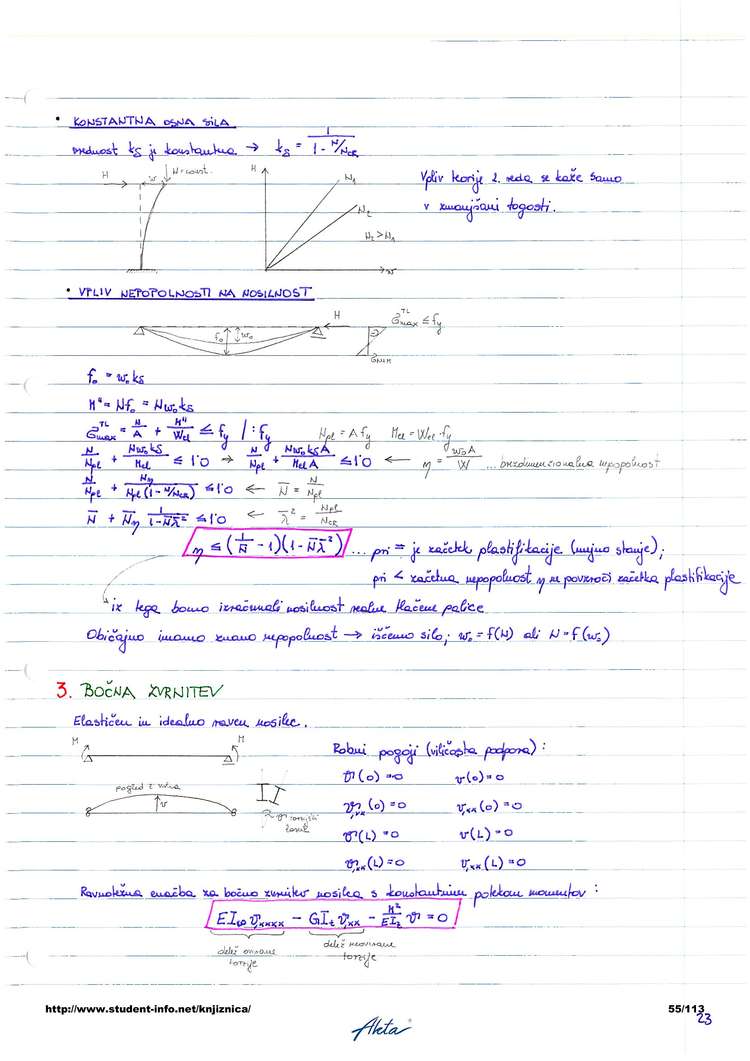 • KONSTANTNA OSNA SILA
vrednost ks je konstantna → ks = 1 / (1 - N/Ncr)
H w N=const. H N1
Vpliv teorije 2. reda se kaže samo
v zmanjšani togosti.
N2
N2 > N1
w
• VPLIV NEPOPOLNOSTI NA NOSILNOST
H
f0 w0 σmax^TL ≤ fy
f0 = w0 ks
M^II = N f0 = N w0 ks
σmax^TL = N/A + M^II/Wel ≤ fy /: fy Npl = A fy Mel = Wel · fy
N/Npl + N w0 ks/Mel ≤ 1'0 → N/Npl + N w0 ks A/Mel A ≤ 1'0 ← η = w0 A/W ... brezdimenzionalna nepopolnost
N/Npl + Nη/Npl(1 - N/Ncr) ≤ 1'0 ← N̄ = N/Npl
N̄ + N̄η 1/(1 - N̄λ̄²) ≤ 1'0 ← λ̄² = Npl/Ncr
η ≤ (1/N̄ - 1)(1 - N̄λ̄²) ... pri = je začetek plastifikacije (mejno stanje);
pri < začetna nepopolnost η ne povzroči začetka plastifikacije
iz tega bomo izračunali nosilnost realne tlačene palice
Običajno imamo znano nepopolnost → iščemo silo; w0 = f(N) ali N = f(w0)
3. BOČNA ZVRNITEV
Elastičen in idealno raven nosilec.
M M
Robni pogoji (viličasta podpora):
ϑ(0) = 0 v(0) = 0
pogled z vrha
v
ϑ,xx(0) = 0 v,xx(0) = 0
ϑ(L) = 0 v(L) = 0
ϑ,xx(L) = 0 v,xx(L) = 0
Ravnotežna enačba za bočno zvrnitev nosilca s konstantnim potekom momentov:
EIω ϑ,xxxx - GIt ϑ,xx - M²/EIz ϑ = 0
delež ovirane
torzije
delež neovirane
torzije
http://www.student-info.net/knjiznica/
55/113
23
Akta